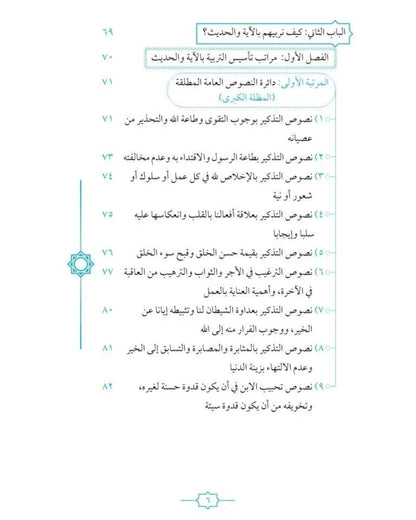 الباب الثاني: كيف نربيهم بالآية والحديث؟ ٦٩
الفصل الأول: مراتب تأسيس التربية بالآية والحديث ٧٠
المرتبة الأولى: دائرة النصوص العامة المطلقة ٧١
(المظلة الكبرى)
١) نصوص التذكير بوجوب التقوى وطاعة الله والتحذير من ٧١
عصيانه
٢) نصوص التذكير بطاعة الرسول والاقتداء به وعدم مخالفته ٧٣
٣) نصوص التذكير بالإخلاص لله في كل عمل أو سلوك أو ٧٤
شعور أو نية
٤) نصوص التذكير بعلاقة أفعالنا بالقلب وانعكاسها عليه ٧٥
سلبا وإيجابا
٥) نصوص التذكير بقيمة حسن الخلق وقبح سوء الخلق ٧٦
٦) نصوص الترغيب في الأجر والثواب والترهيب من العاقبة ٧٧
في الآخرة، وأهمية العناية بالعمل
٧) نصوص التذكير بعداوة الشيطان لنا وتثبيطه إيانا عن ٨٠
الخير، ووجوب الفرار منه إلى الله
٨) نصوص التذكير بالمثابرة والمصابرة والتسابق إلى الخير ٨١
وعدم الالتهاء بزينة الدنيا
٩) نصوص تحبيب الابن في أن يكون قدوة حسنة لغيره، ٨٢
وتخويفه من أن يكون قدوة سيئة
٦